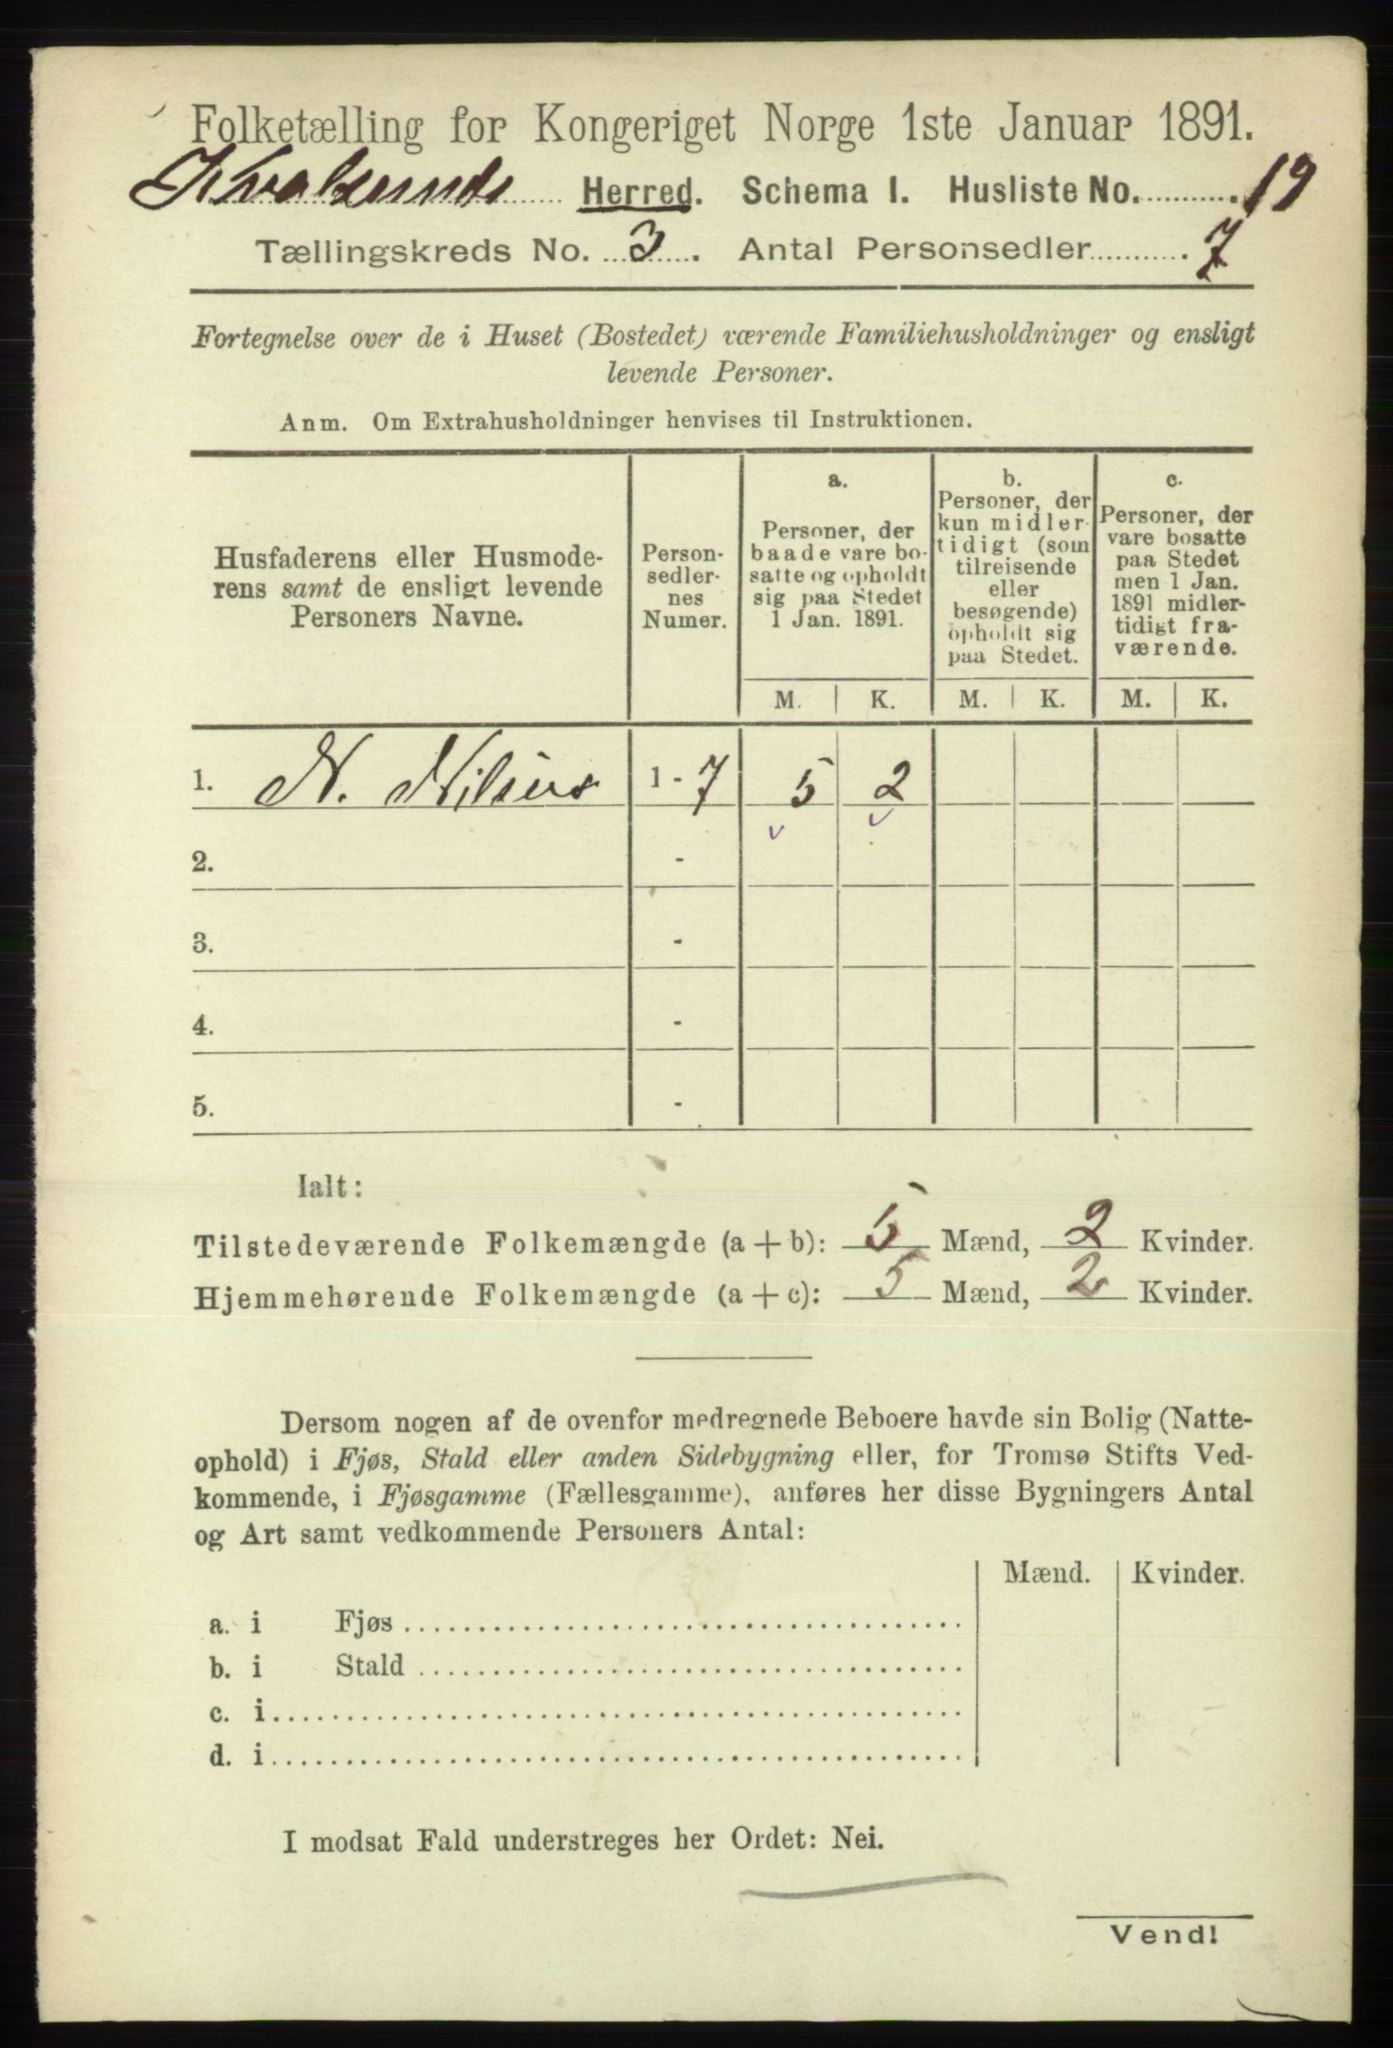 Folketælling for Kongeriget Norge 1ste Januar 1891.
Kvalsunds Herred. Schema I. Husliste No. 19
Tællingskreds No. 3. Antal Personsedler 7
Fortegnelse over de i Huset (Bostedet) værende Familiehusholdninger og ensligt
levende Personer.
Anm. Om Extrahusholdninger henvises til Instruktionen.
Husfaderens eller Husmode-
rens samt de ensligt levende
Personers Navne.
Person-
sedler-
nes
Numer.
a.
Personer, der
baade vare bo-
satte og opholdt
sig paa Stedet
1 Jan. 1891.
b.
Personer, der
kun midler-
tidigt (som
tilreisende
eller
besøgende)
opholdt sig
paa Stedet.
c.
Personer, der
vare bosatte
paa Stedet
men 1 Jan.
1891 midler-
tidigt fra-
værende.
M. K. M. K. M. K.
1. N. Nilsen 1 - 7 5 2
2. -
3. -
4. -
5. -
Ialt:
Tilstedeværende Folkemængde (a + b): 5 Mænd, 2 Kvinder.
Hjemmehørende Folkemængde (a + c): 5 Mænd, 2 Kvinder.
Dersom nogen af de ovenfor medregnede Beboere havde sin Bolig (Natte-
ophold) i Fjøs, Stald eller anden Sidebygning eller, for Tromsø Stifts Ved-
kommende, i Fjøsgamme (Fællesgamme), anføres her disse Bygningers Antal
og Art samt vedkommende Personers Antal:
Mænd. Kvinder.
a. i Fjøs
b. i Stald
c. i
d. i
I modsat Fald understreges her Ordet: Nei.
Vend!